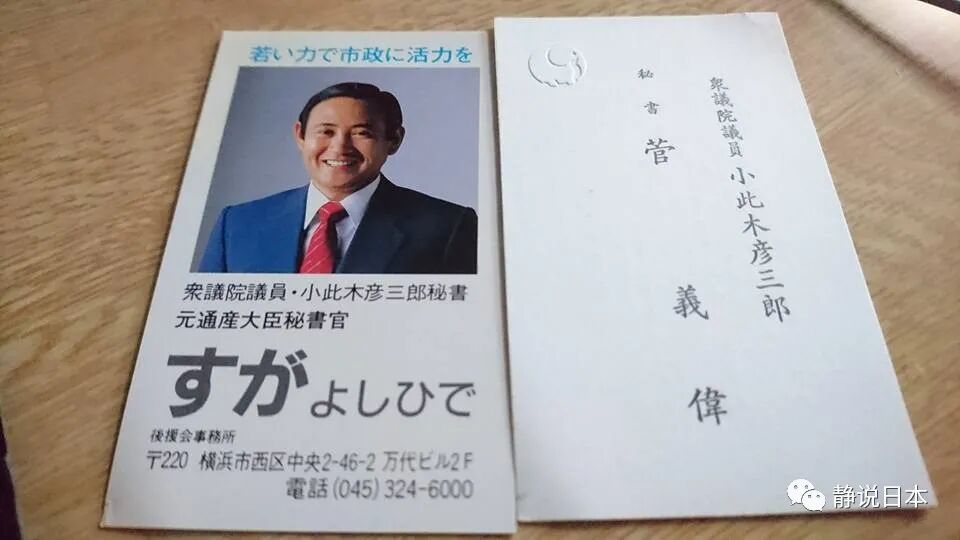 若い力で市政に活力を
衆議院議員・小此木彦三郎秘書
元通産大臣秘書官
すがよしひで
後援会事務所
〒220 横浜市西区中央2-46-2 万代ビル2F
電話(045)324-6000
衆議院議員 小此木彦三郎
秘書 菅義偉
静说日本